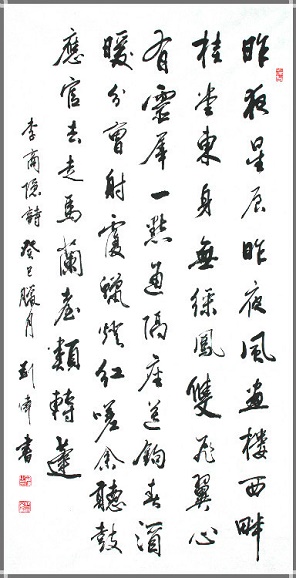 昨夜星辰昨夜風畫樓西畔
桂堂東身無綵鳳雙飛翼心
有靈犀一點通隔座送鉤春酒
暖分曹射覆蠟燈紅嗟余聽鼓
應官去走馬蘭臺類轉蓬
李商隱詩癸巳臘月書